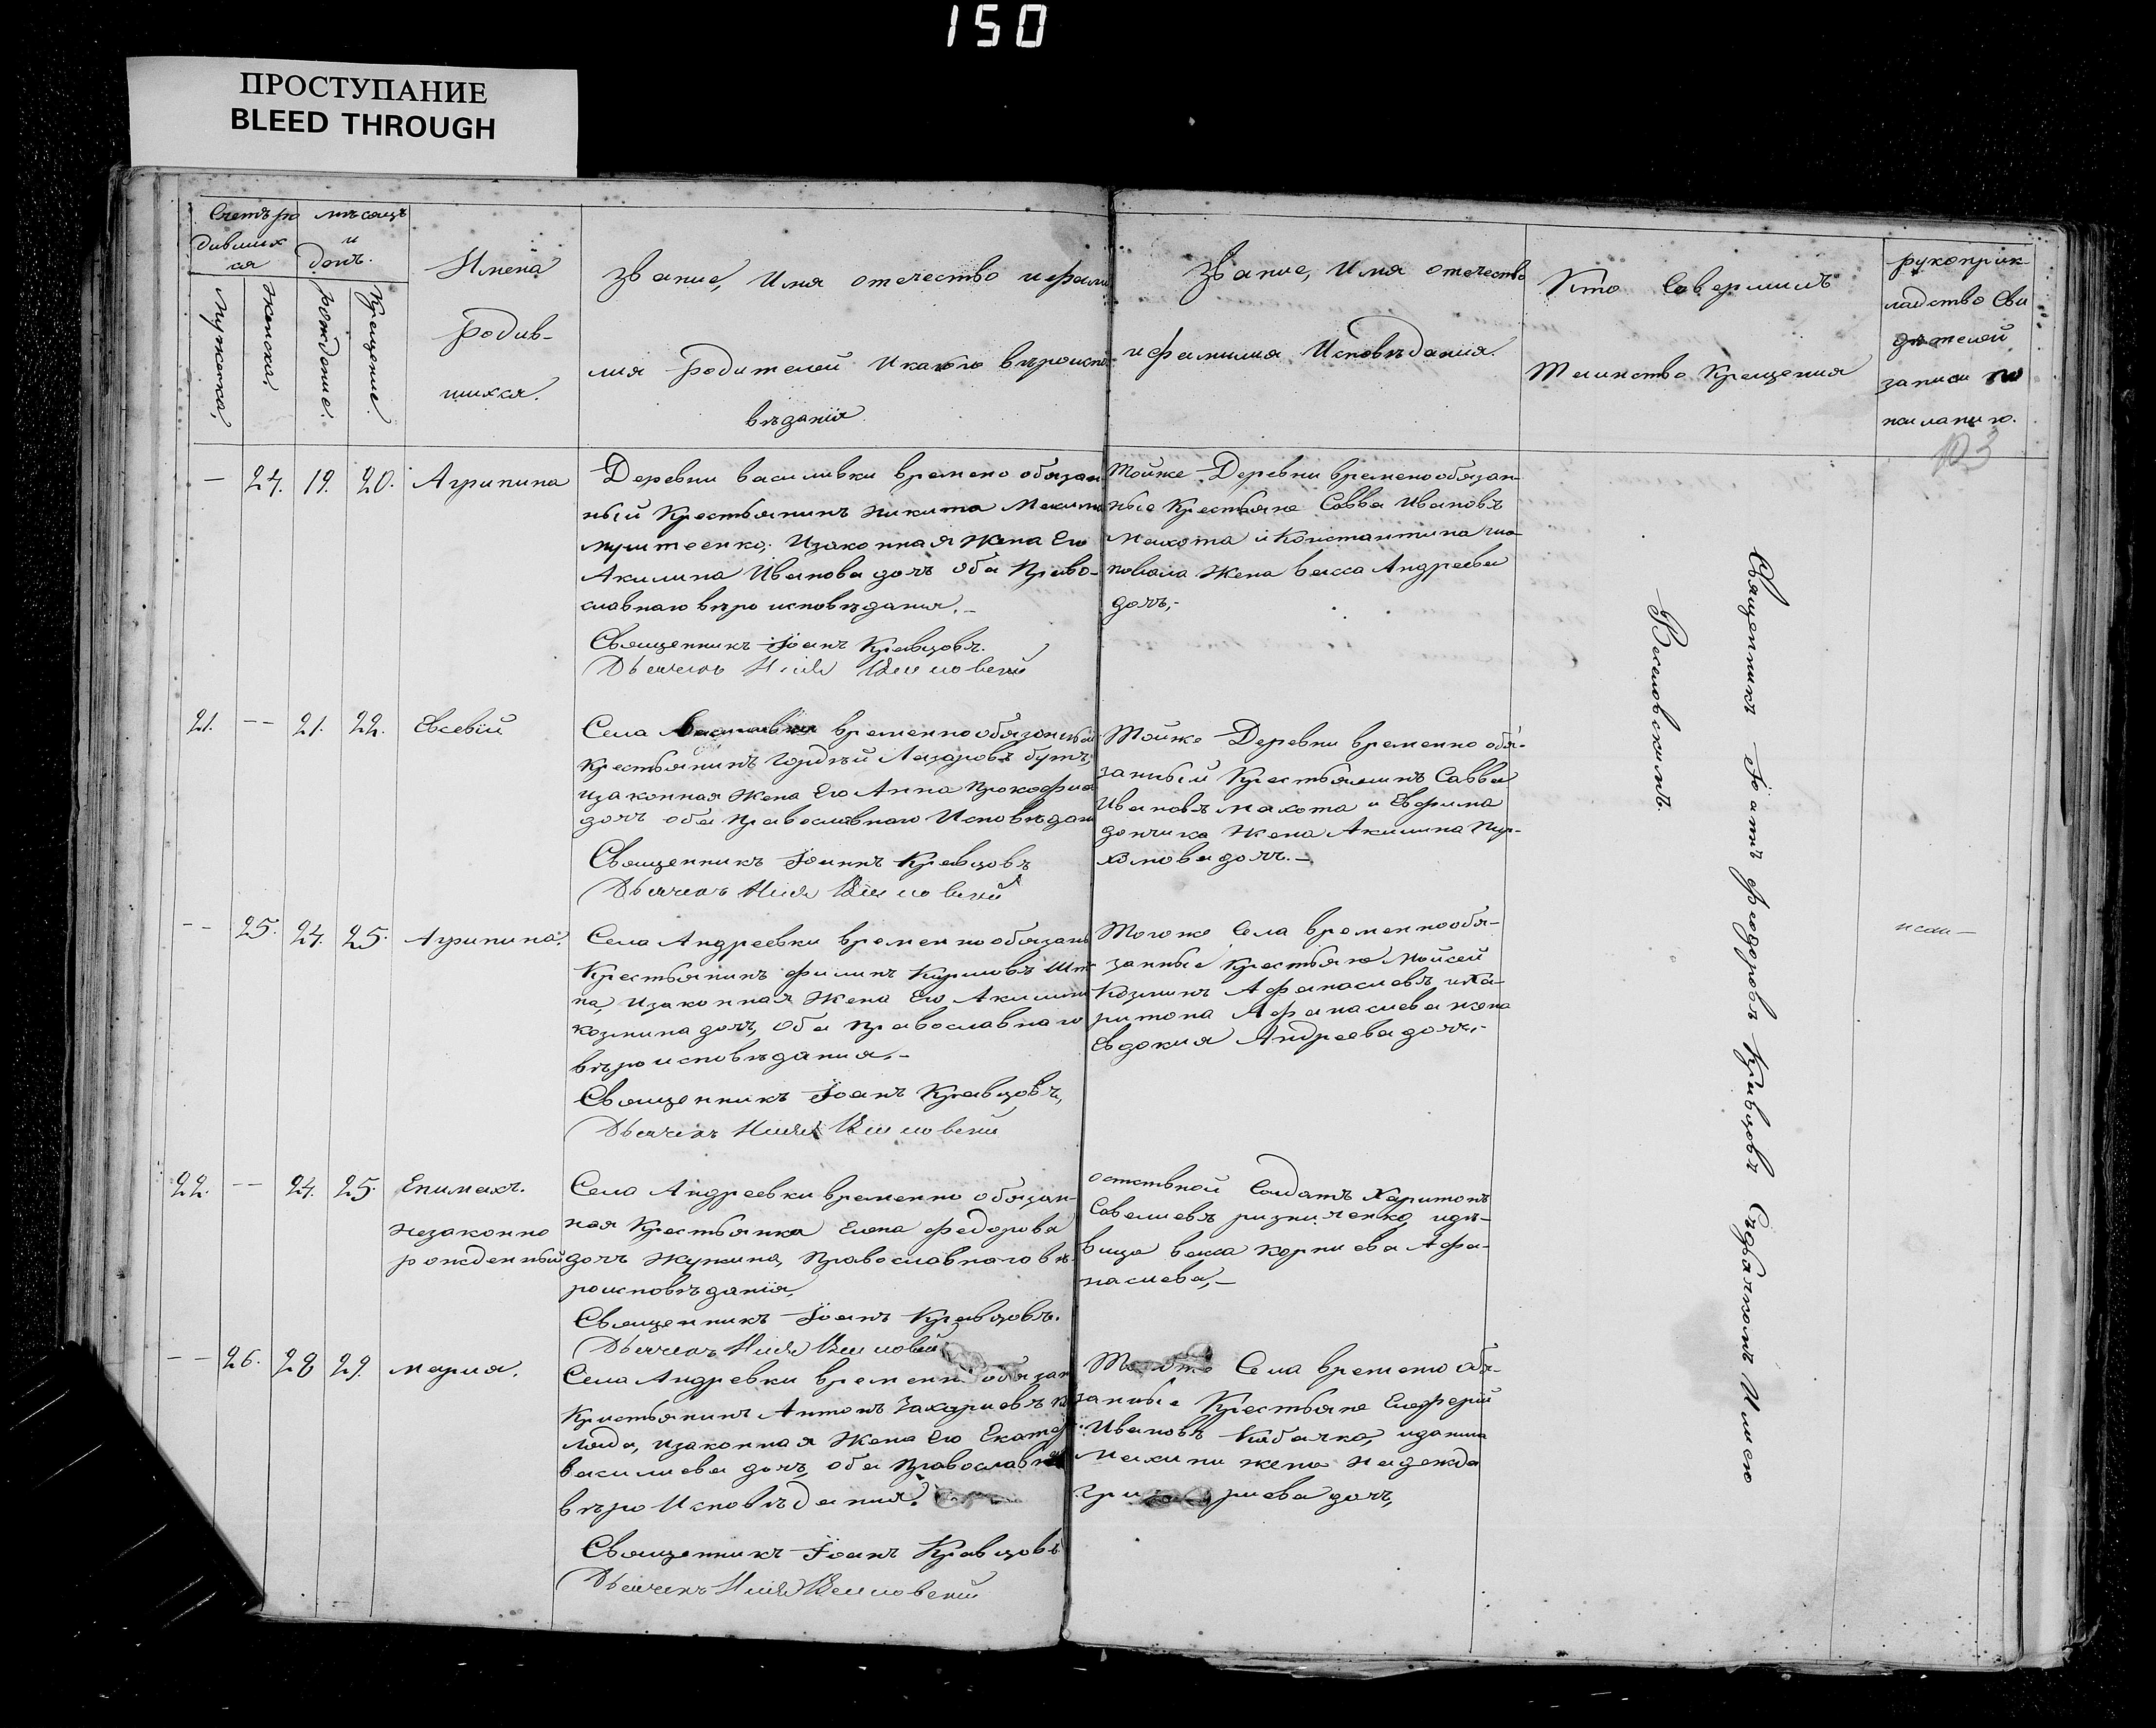 150
ПРОСТУПАНИЕ
BLEED THROUGH
Счетъ ро
дивших
ся
мѣсяцъ
и
день.
Мужеска.
женска.
рожденіе.
Крещеніе.
Имена
родив-
шихся.
Званіе, Имя отечество и фами
лия родителей И какого вѣроиспо
вѣданія
Званіе, Имя отечество
и фамилия Исповѣдания.
Кто Совершилъ
Таинство Крещения
рукоприк
ладство Сви
дѣтелей
записи по
желанию.
103
— 24. 19. 20. Агрипина
Деревни василивки времено обязан
ный Крестьянинъ никита
Изаконная жена Его
Акилина Иванова дочь оба Право-
славнаго вѣро исповѣдания.—
Священникъ Іоанъ Кравцовъ.
Дьячекъ Илія
Тойже Деревни временообязан-
ные Крестьяне Савва Ивановъ
махота и Константина
жена васса Андреева
дочь,-
21. -- 21. 22. Евсевій
Села временнообязонный
крестьянинъ гордѣй Лазаровъ
изаконная жена Его Анна Прокофиева
дочь оба Православнаго Исповѣдан
Священникъ Іоаннъ Кравцовъ
Дьячекъ Илія
Тойже Деревни временно обя-
занный Крестьянинъ Савва
Ивановъ махота и Ефрима
дончика жена Акилина Пар-
хомова дочь.—
-- 25. 24. 25. Агрипина.
Села Андреевки временнообязан
Крестьянинъ филипъ Кириловъ
на, изаконная жена Его Акилина
козмина дочь, Оба православнаго
вѣроисповѣдания.-
Священникъ Іоанъ Кравцовъ,
Дьячекъ Илія
Тогоже Села временнообя-
занные крестьяне Мойсей
Козминъ Афанасиевъ, иха-
ритона Афанасиева жена
Евдокия Андреева дочь,-
22. -- 24. 25. Епимахъ.
незаконно
рожденный
Села Андреевки временно обязан-
ная Крестьянка Елена федорова
дочь Жукина, Православнаго вѣ-
роисповѣданія,
Священникъ Іоанъ Кравцовъ.
Дьячекъ Илія
отствной Солдатъ Харитонъ
Савелиевъ ризниченко, идѣ-
вица васса корниева Афа-
насиева,—
-- 26. 28 29. мария.
Села Андревки временно обязан
Кристьянинъ Антонъ Захариевъ
изаконная жена Его Екатер
василиева дочь, оба Православнаго
вѣро Исповѣдания.
Священникъ Іоанъ Кравцовъ
Дьячекъ Илія
Тогоже Села времено обя-
занные Крестьяне Елеферій
Ивановъ Кабачко, иданила
Махини жена надежда
григориева дочь,
Священникъ Іоанъ федоровъ Кравцовъ Съдьячкомъ Илиею
Веселовскимъ.